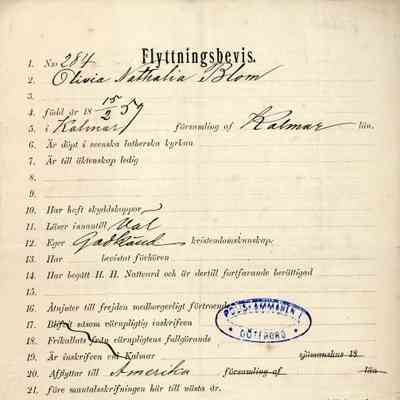 Flyttningsbevis.
1. N:o 284
2. Olivia Nathalia Blom
3.
4. född år 18 15/2 57
5. i Kalmar församling af Kalmar län.
6. Är döpt i svenska lutherska kyrkan
7. Är till äktenskap ledig
8.
9.
10. Har haft skyddskoppor
11. Läser innantill Väl
12. Eger Godkänd kristendomskunskap.
13. Har bevistat förhören
14. Har begått H. H. Nattvard och är dertill fortfarande berättigad
15.
16. Åtnjuter till frejden medborgerligt förtroende
POLISKAMMAREN I GÖTEBORG
17. såsom värnpligtig inskrifven
18. Frikallats från värnpligtens fullgörande
19. Är inskrifven vid Kalmar sjömanshus 18
20. Afflyttar till Amerika församling af län
21. före mantalsskrifningen här till nästa år.